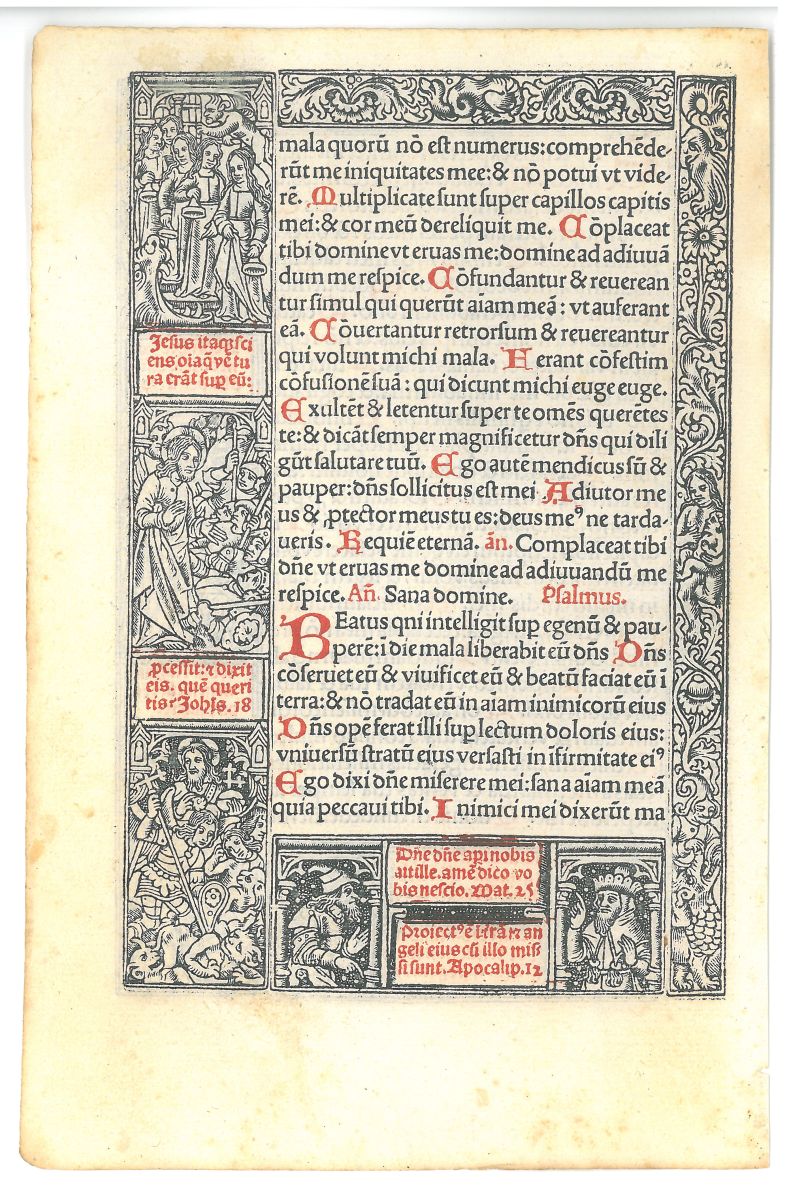 mala quorū nō est numerus:comprehēde-
rūt me iniquitates mee:& nō potui vt vide-
rē. Multiplicate sunt super capillos capitis
mei:& cor meū dereliquit me. Cōplaceat
tibi domine vt eruas me:domine ad adiuuā
dum me respice. Cōfundantur & reuerean
tur simul qui querūt aīam meā: vt auferant
eā. Cōuertantur retrorsum & reuereantur
qui volunt michi mala. Ferant cōfestim
cōfusionē suā: qui dicunt michi euge euge.
Exultēt & letentur super te omēs querētes
te:& dicāt semper magnificetur dn̄s qui dili
gūt salutare tuū. Ego autē mendicus sū &
pauper:dn̄s sollicitus est mei Adiutor me
us & ꝓtector meus tu es:deus meꝰ ne tarda-
ueris. Requiē eternā. an̄. Complaceat tibi
dn̄e vt eruas me domine ad adiuuandū me
respice. An̄. Sana domine. Psalmus.
BEatus qni intelligit suꝑ egenū & pau-
perē:ī die mala liberabit eū dn̄s Dn̄s
cōseruet eū & viuificet eū & beatū faciat eū ī
terra:& nō tradat eū in aīam inimicorū eius
Dn̄s opē ferat illi suꝑ lectum doloris eius:
vniuersū stratū eius versasti in īfirmitate eiꝰ
Ego dixi dn̄e miserere mei:sana aīam meā
quia peccaui tibi. Inimici mei dixerūt ma
Jesus itaqꝫ sci
ens oīa q̄ vētu
ra erāt suꝑ eū:
ꝓcessit:⁊ dixit
eis. quē queri
tis? Johīs.18
Dn̄e dn̄e aꝑi nobis
at ille. amē dico vo
bis nescio. Mat. 25
Proiectꝰ ē ī terā ⁊ an
geli eius cū illo mis
si sunt. Apocalip.12